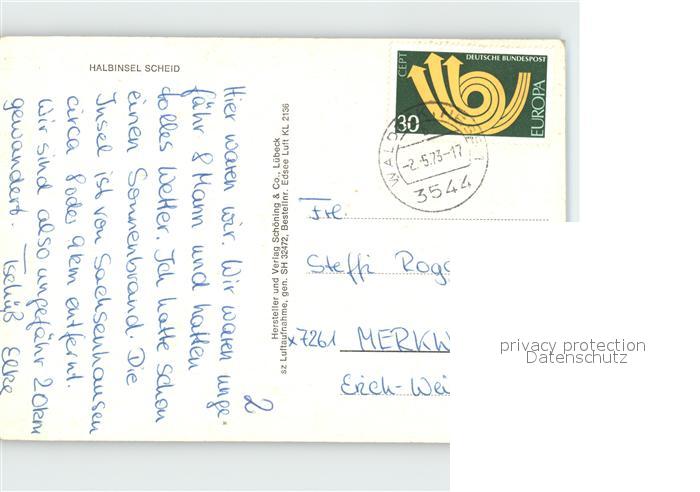 HALBINSEL SCHEID
Hier waren wir. Wir waren unge-
fähr 8 Mann und hatten
tolles Wetter. Ich hatte schon
einen Sonnenbrand. Die
Insel ist von Sachsenhausen
circa 8 oder 9 km entfernt.
Wir sind also ungefähr 20 km
gewandert. — Tschüß Elke
2
Hersteller und Verlag Schöning & Co., Lübeck
sz Luftaufnahme, gen. SH 32472, Bestellnr. Edsee Luft KL 2136
CEPT
DEUTSCHE BUNDESPOST
EUROPA
30
-2.-5.73-17
3544
Frl.
Steffi
x7261
Erich-
privacy protection
Datenschutz